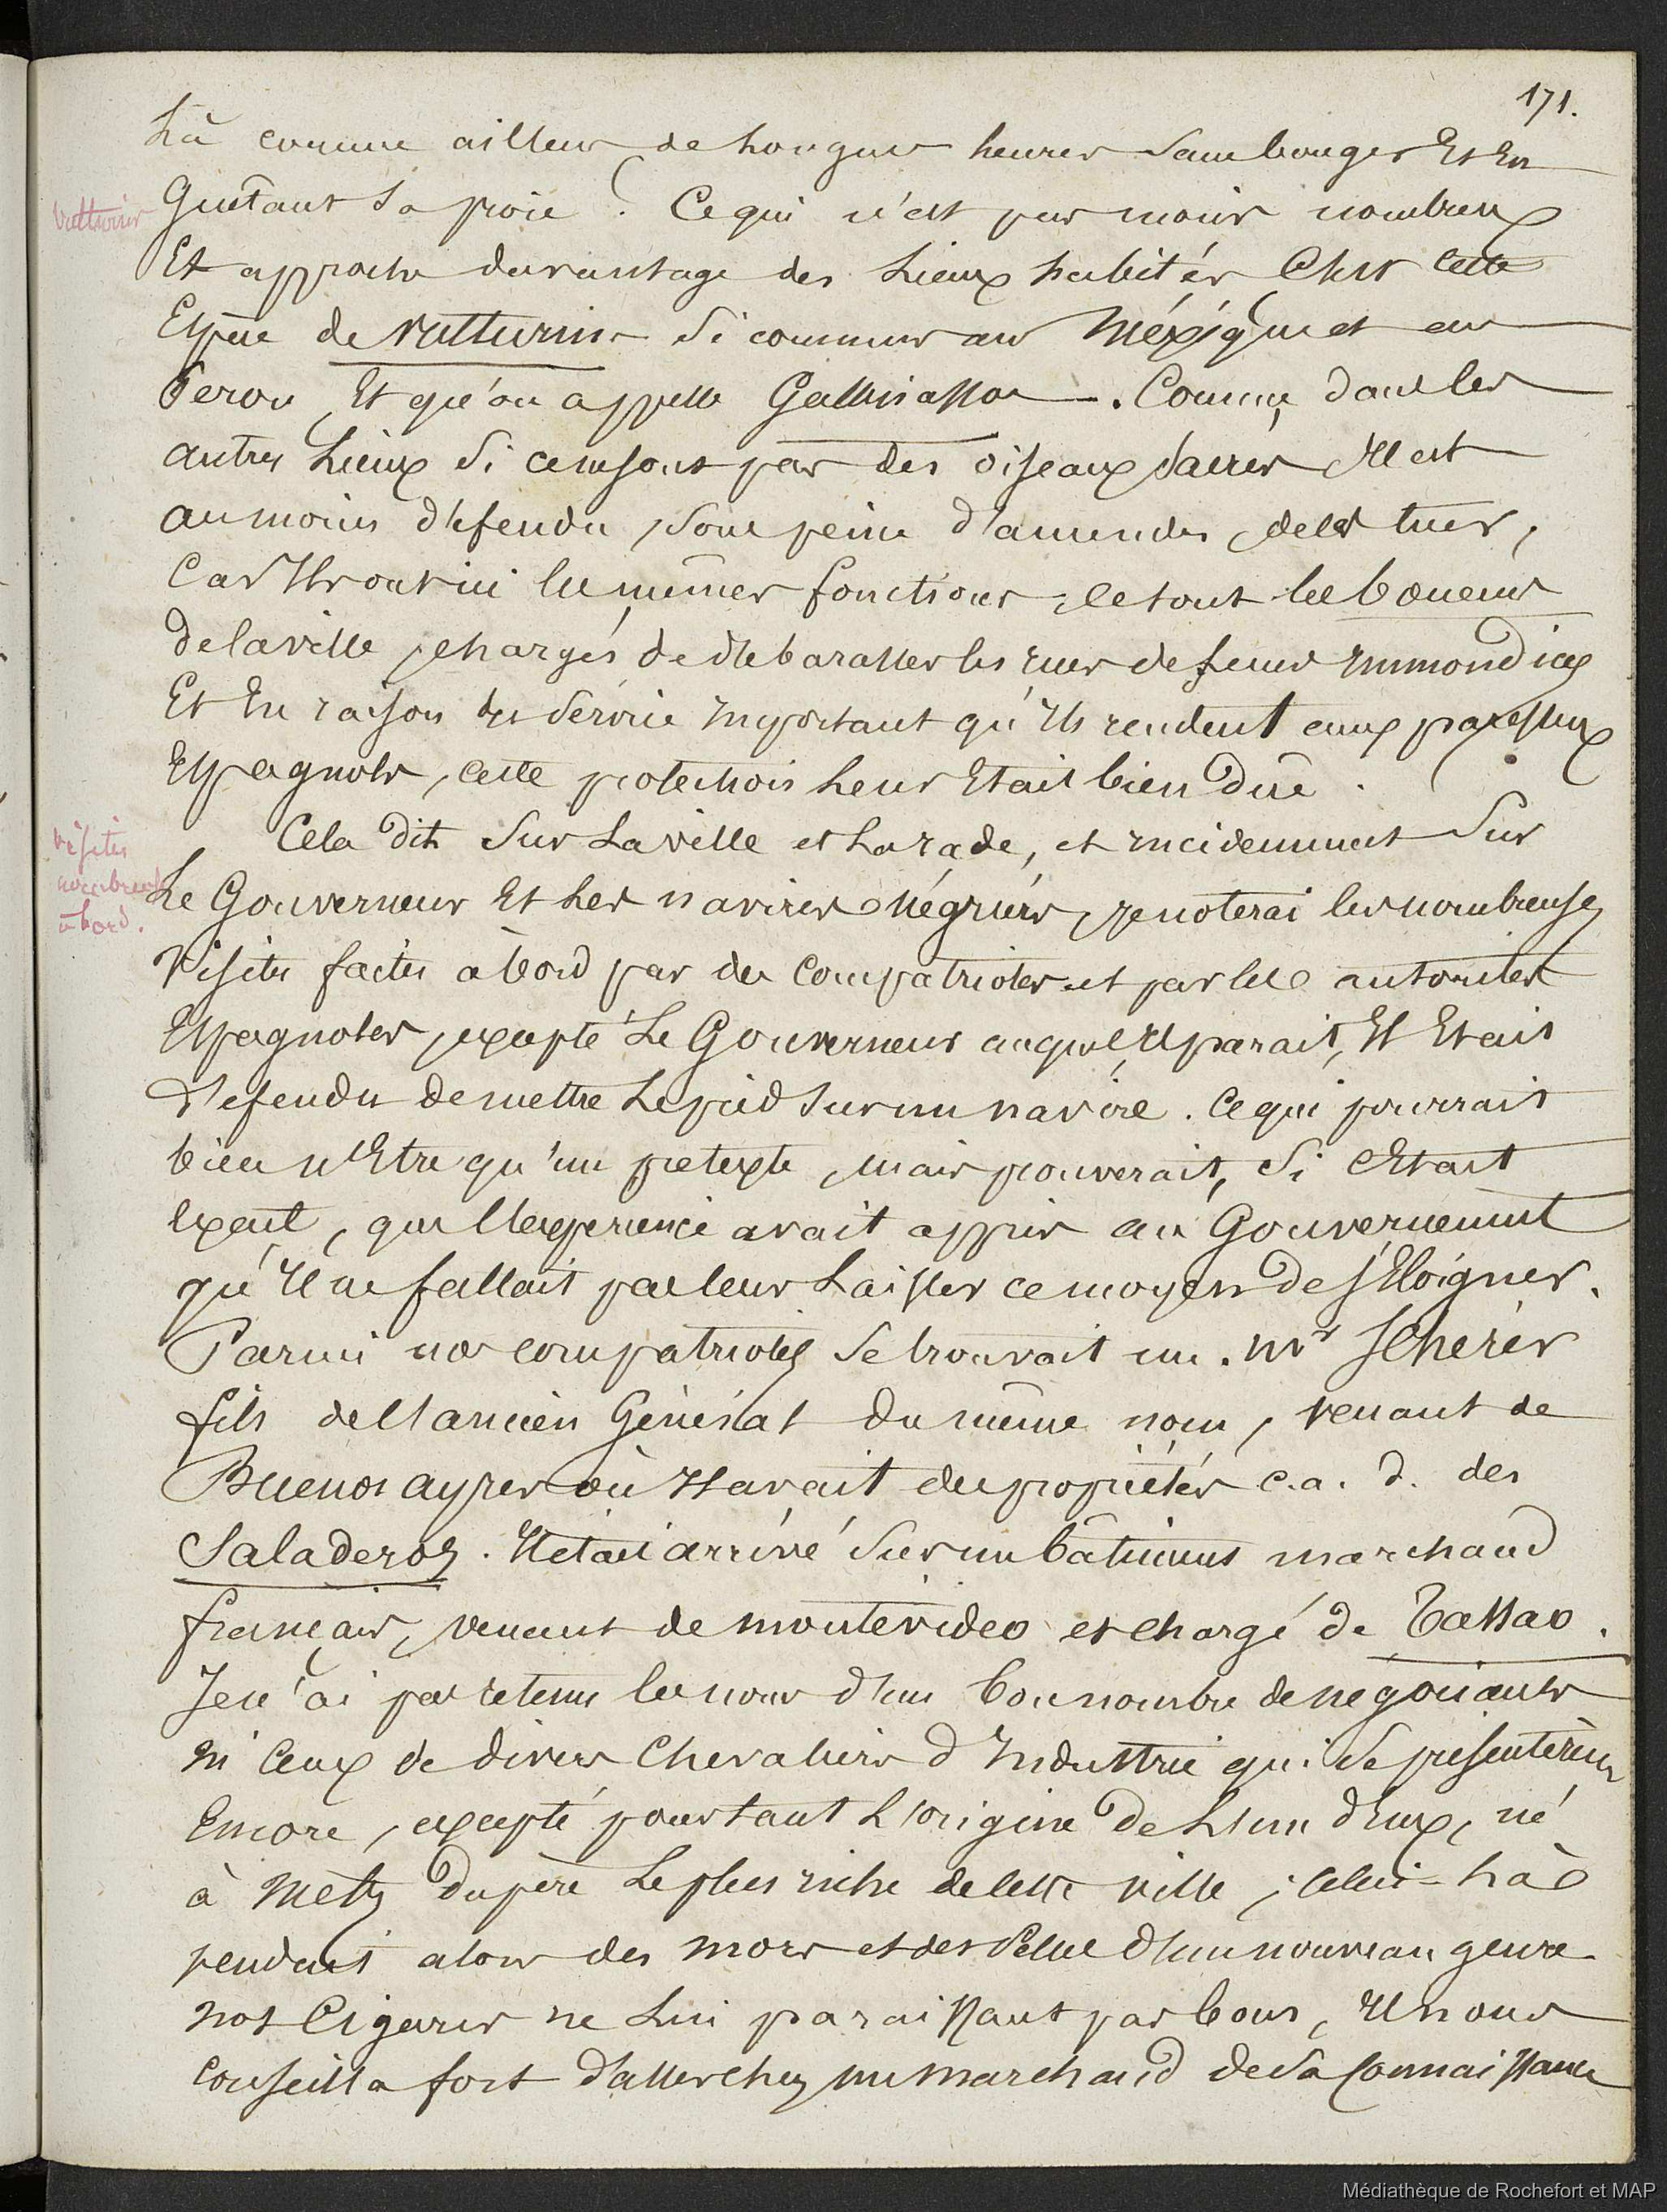 171.
Là comme ailleurs de Longues heures Sans bouger Et En
vutturins
Guêtant Sa proie ? Ce qui n'est pas moins nombreux
Et approche davantage des Lieux habités C'est cette
Espèce de vutturins Si communs au Méxique et au
Perou, Et qu'on appelle Gallinassos. Comme dans les
autres Lieux Si ce ne sont pas des oiseaux Sacrés Il est
au moins défendu, Sous peine d'amendes, de les tuer,
Car Ils ont ici les mêmes fonctions, ce sont les boueurs
de la ville, chargés de débarasser les rues de leurs Immondices
Et En raison du Service Important qu'Ils rendent aux paresseux
Espagnols, cette protection Leur Etait bien dûe.
visites
nombreuses
à bord.
Cela dit Sur La ville et La rade, et incidemment Sur
Le Gouverneur Et Les navires négriers, je noterai les nombreuses
Visites faites à bord par des Compatriotes et par les autorités
Espagnoles, excepté Le Gouverneur auquel, Il parait, Il Etait
défendu de mettre Le pied Sur un navire. Ce qui pourrait
bien n'Etre qu'un pretexte, mais prouverait, Si c'Etait
exact, que l'experience avait appris au Gouvernement
qu'Il ne fallait pas leur Laisser ce moyen de s'Eloigner.
Parmi nos compatriotes Se trouvait un Mr Scherer
fils de l'ancien Général du même nom, venant de
Buenos ayres où Il avait des propriétés c.a.d. des
Saladeros. Il était arrivé Sur un bâtiment marchand
français, venant de montévideo et chargé de Tassao.
Je n'ai pas retenu les noms d'un bon nombre de négociants
ni ceux de divers Chevaliers d'Industrie qui Se présentèrent
Encore, excepté pourtant L'origine de L'un d'Eux, né
à Metz du père Le plus riche de cette ville ; celui-là
vendait alors des mors et des Selles d'un nouveau genre
nos Cigares ne Lui paraissant pas bons, Il nous
conseilla fort d'aller chez un marchand de Sa Connaissance
Médiathèque de Rochefort et MAP